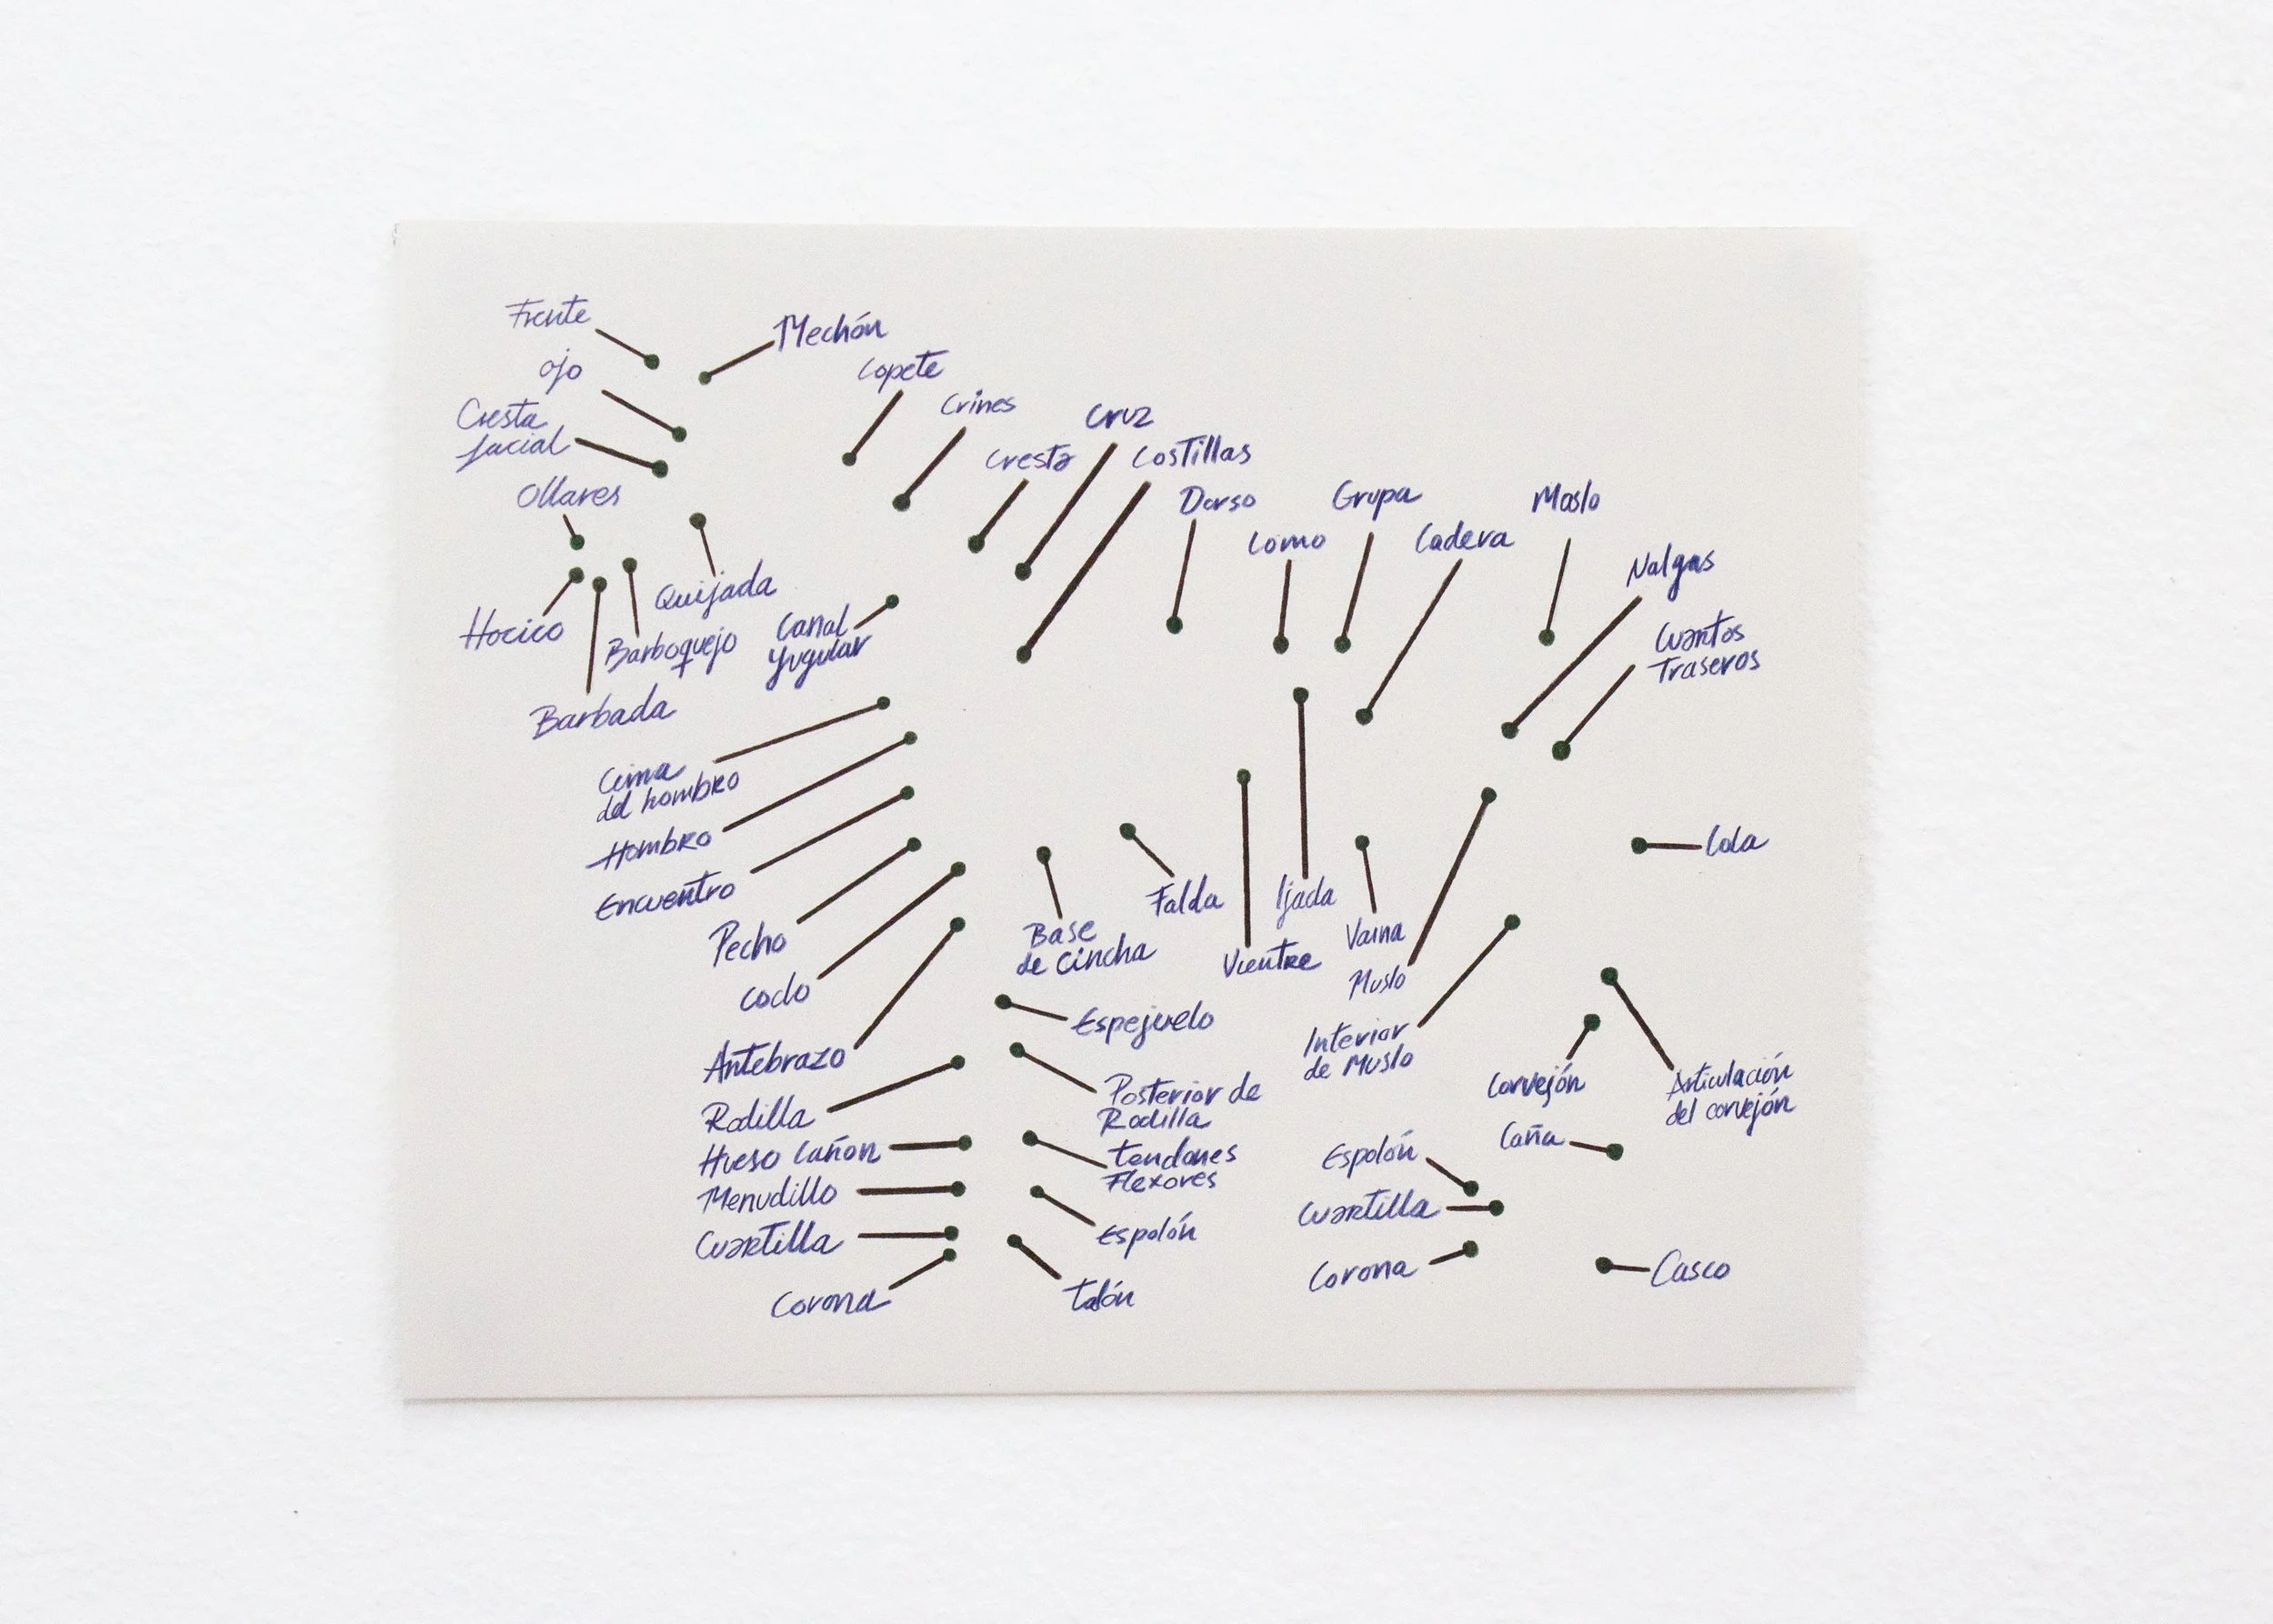 Frente
Mechón
ojo
Copete
Cresta
facial
Crines
Cruz
Cresta
Costillas
Ollares
Dorso
Grupa
Maslo
Lomo
Cadera
Nalgas
Quijada
Hocico
Barboquejo
Canal
Yugular
Cuartos
Traseros
Barbada
Cima
del hombro
Hombro
Cola
Encuentro
Falda
Ijada
Pecho
Base
de Cincha
Vientre
Vaina
Muslo
Codo
Espejuelo
Antebrazo
Interior
de Muslo
Corvejón
Articulación
del corvejón
Posterior de
Rodilla
Rodilla
Hueso Cañon
Tendones
Flexores
Espolón
Caña
Menudillo
Cuartilla
Cuartilla
Espolón
Corona
Talón
Corona
Casco